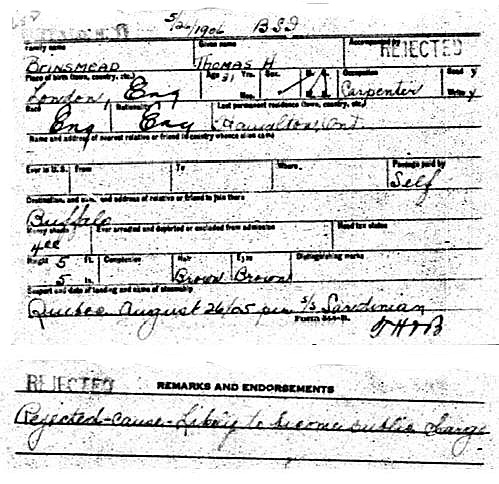 5/26/1906 BSI
Family name Given name Accompanied by
REJECTED
BRINSMEAD THOMAS H
Place of birth (town, country, etc.) Age 31 Yrs. Sex M. S. Occupation Read y
London, Eng Mos. Carpenter Write y
Race Nationality Last permanent residence (town, country, etc.)
Eng Eng Hamilton, Ont
Name and address of nearest relative or friend in country whence alien came
Ever in U.S. From To Where Passage paid by
Self
Destination, and name and address of relative or friend to join there
Buffalo
Money shown Ever arrested and deported or excluded from admission Head tax status
4.00
Height 5 ft. Complexion Hair Eyes Distinguishing marks
5 in. Brown Brown
Seaport and date of landing and name of steamship
Quebec August 26/05 per S/S Sardinian
Form
THB
REJECTED REMARKS AND ENDORSEMENTS
Rejected-cause-Likely to become public charge